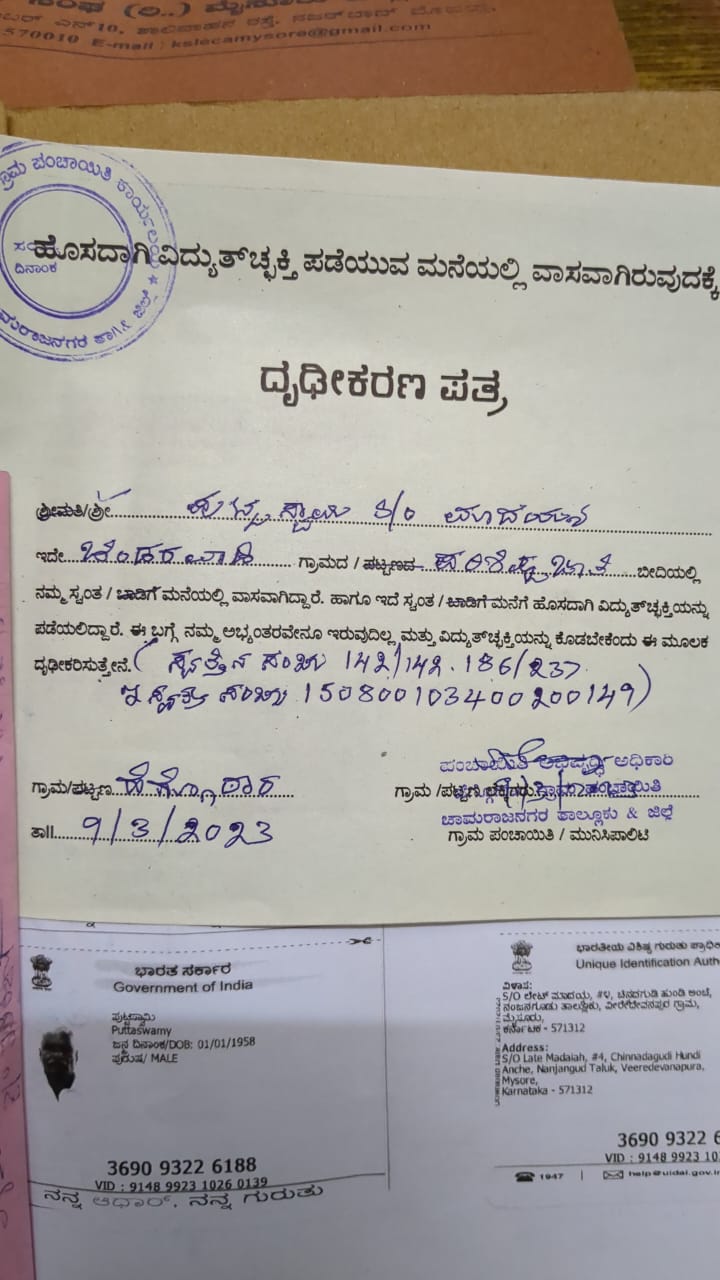 570010 E-mail : kslecamysore@gmail.com
ಗ್ರಾಮ ಪಂಚಾಯಿತಿ ಕಾರ್ಯಾಲಯ
ದಿನಾಂಕ
ಹೊಸದಾಗಿ ವಿದ್ಯುತ್‌ಚ್ಛಕ್ತಿ ಪಡೆಯುವ ಮನೆಯಲ್ಲಿ ವಾಸವಾಗಿರುವುದಕ್ಕೆ
ದೃಢೀಕರಣ ಪತ್ರ
ಶ್ರೀಮತಿ/ಶ್ರೀ ಪುಟ್ಟಸ್ವಾಮಿ S/O ಮಾದಯ್ಯ
ಇದೇ ಗ್ರಾಮದ / ಪಟ್ಟಣದ ಬೀದಿಯಲ್ಲಿ
ನಮ್ಮ ಸ್ವಂತ / ಬಾಡಿಗೆ ಮನೆಯಲ್ಲಿ ವಾಸವಾಗಿದ್ದಾರೆ. ಹಾಗೂ ಇದೆ ಸ್ವಂತ / ಬಾಡಿಗೆ ಮನೆಗೆ ಹೊಸದಾಗಿ ವಿದ್ಯುತ್‌ಚ್ಛಕ್ತಿಯನ್ನು
ಪಡೆಯಲಿದ್ದಾರೆ. ಈ ಬಗ್ಗೆ ನಮ್ಮ ಅಭ್ಯಂತರವೇನೂ ಇರುವುದಿಲ್ಲ ಮತ್ತು ವಿದ್ಯುತ್‌ಚ್ಛಕ್ತಿಯನ್ನು ಕೊಡಬೇಕೆಂದು ಈ ಮೂಲಕ
ದೃಢೀಕರಿಸುತ್ತೇನೆ. ( ಸ್ವತ್ತಿನ ಸಂಖ್ಯೆ 142/142.186/237
ಇ ಸ್ವತ್ತು ಸಂಖ್ಯೆ 150800103400200149)
ಗ್ರಾಮ/ಪಟ್ಟಣ
ತಾ|| 9/3/2023
ಪಂಚಾಯಿತಿ ಅಭಿವೃದ್ಧಿ ಅಧಿಕಾರಿ
ಗ್ರಾಮ /ಪಟ್ಟಣ
ಚಾಮರಾಜನಗರ ತಾಲ್ಲೂಕು & ಜಿಲ್ಲೆ
ಗ್ರಾಮ ಪಂಚಾಯಿತಿ / ಮುನಿಸಿಪಾಲಿಟಿ
ಭಾರತ ಸರ್ಕಾರ
Government of India
ಪುಟ್ಟಸ್ವಾಮಿ
Puttaswamy
ಜನ್ಮ ದಿನಾಂಕ/DOB: 01/01/1958
ಪುರುಷ/ MALE
3690 9322 6188
VID : 9148 9923 1026 0139
ನನ್ನ ಆಧಾರ್, ನನ್ನ ಗುರುತು
ಭಾರತೀಯ ವಿಶಿಷ್ಟ ಗುರುತು ಪ್ರಾಧಿ
Unique Identification Auth
ವಿಳಾಸ:
S/O ಲೇಟ್ ಮಾದಯ್ಯ, #೪, ಚಿನದಗುಡಿ ಹುಂಡಿ ಅಂಚೆ,
ನಂಜನಗೂಡು ತಾಲ್ಲೂಕು, ವೀರೇದೇವನಪುರ ಗ್ರಾಮ,
ಮೈಸೂರು,
ಕರ್ನಾಟಕ - 571312
Address:
S/O Late Madaiah, #4, Chinnadagudi Hundi
Anche, Nanjangud Taluk, Veeredevanapura,
Mysore,
Karnataka - 571312
3690 9322 6
VID : 9148 9923 10
1947 | help@uidai.gov.in